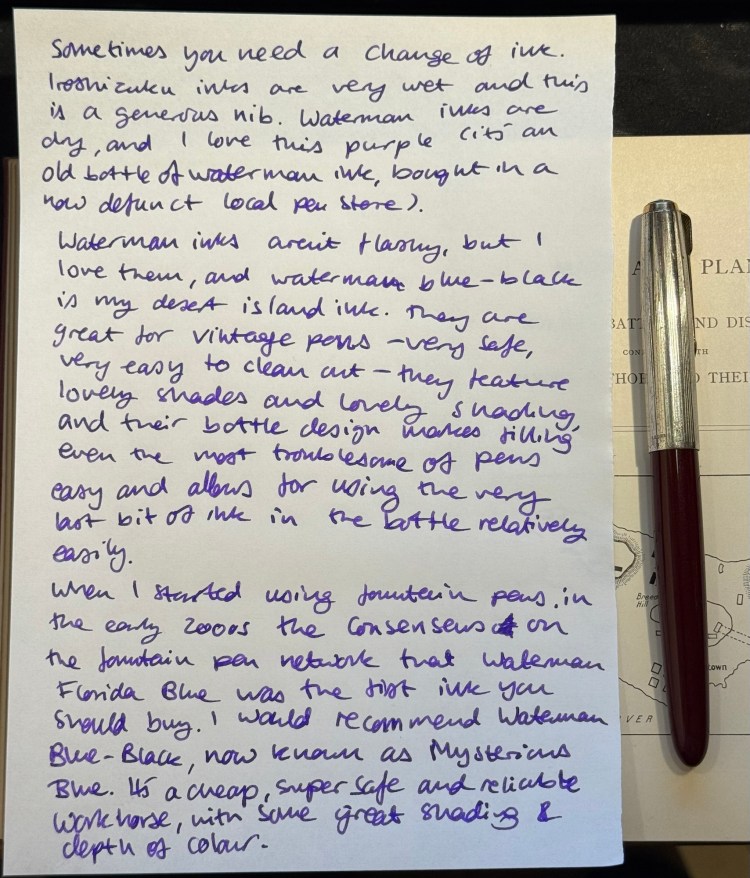 Sometimes you need a change of ink.
Iroshizuku inks are very wet and this
is a generous nib. Waterman inks are
dry, and I love this purple (it's an
old bottle of waterman ink, bought in a
now defunct local pen store).
Waterman inks aren't flashy, but I
love them, and waterman blue-black
is my desert island ink. They are
great for vintage pens - very safe,
very easy to clean out - they feature
lovely shades and lovely shading,
and their bottle design makes filling
even the most troublesome of pens
easy and allows for using the very
last bit of ink in the bottle relatively
easily.
When I started using fountain pens, in
the early 2000s the consensus on
the fountain pen network that Waterman
Florida Blue was the first ink you
should buy. I would recommend Waterman
Blue-Black, now known as Mysterious
Blue. It's a cheap, super safe and reliable
workhorse, with some great shading &
depth of colour.
A PLAN
BATT ND DIS
CON TH
HOR D THEI
Breed
Hill
town
VER